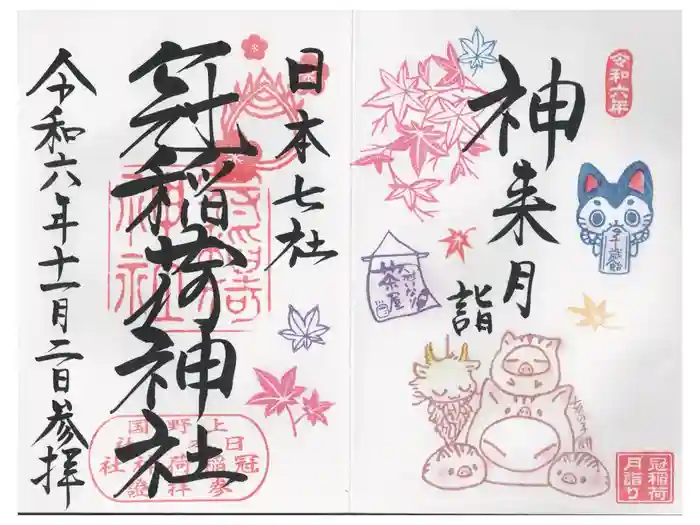 令和六年
神来月
詣
幸
千歳飴
茶屋
冠稲荷
月詣り
日本七社
冠稲荷神社
令和六年十一月二日参拝
上野国
日冠稲荷
神社